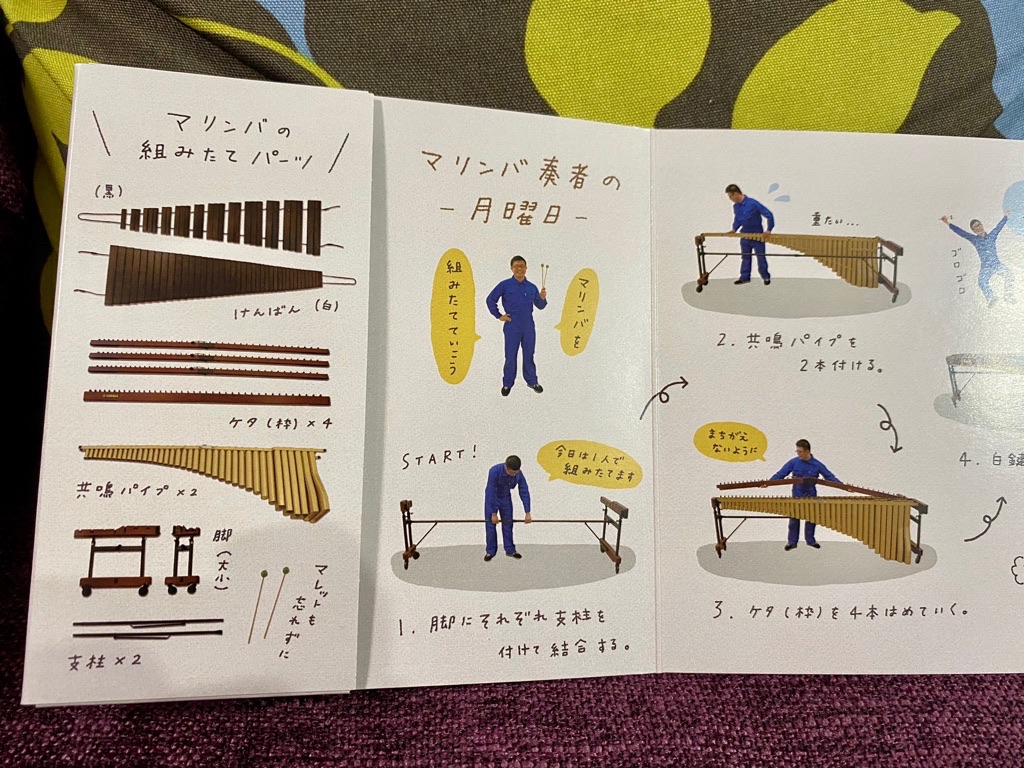 マリンバの
組みたてパーツ
(黒)
けんばん (白)
ケタ(枠)×4
共鳴パイプ×2
脚(大小)
マレットを
忘れずに
支柱×2
マリンバ奏者の
-月曜日-
マリンバを
組みたてていこう
START!
今日は1人で
組みたてます
1. 脚にそれぞれ支柱を
付けて結合する。
重たい...
2. 共鳴パイプを
2本付ける。
まちがえ
ないように
3. ケタ(枠)を4本はめていく。
ゴロゴロ
4. 白鍵